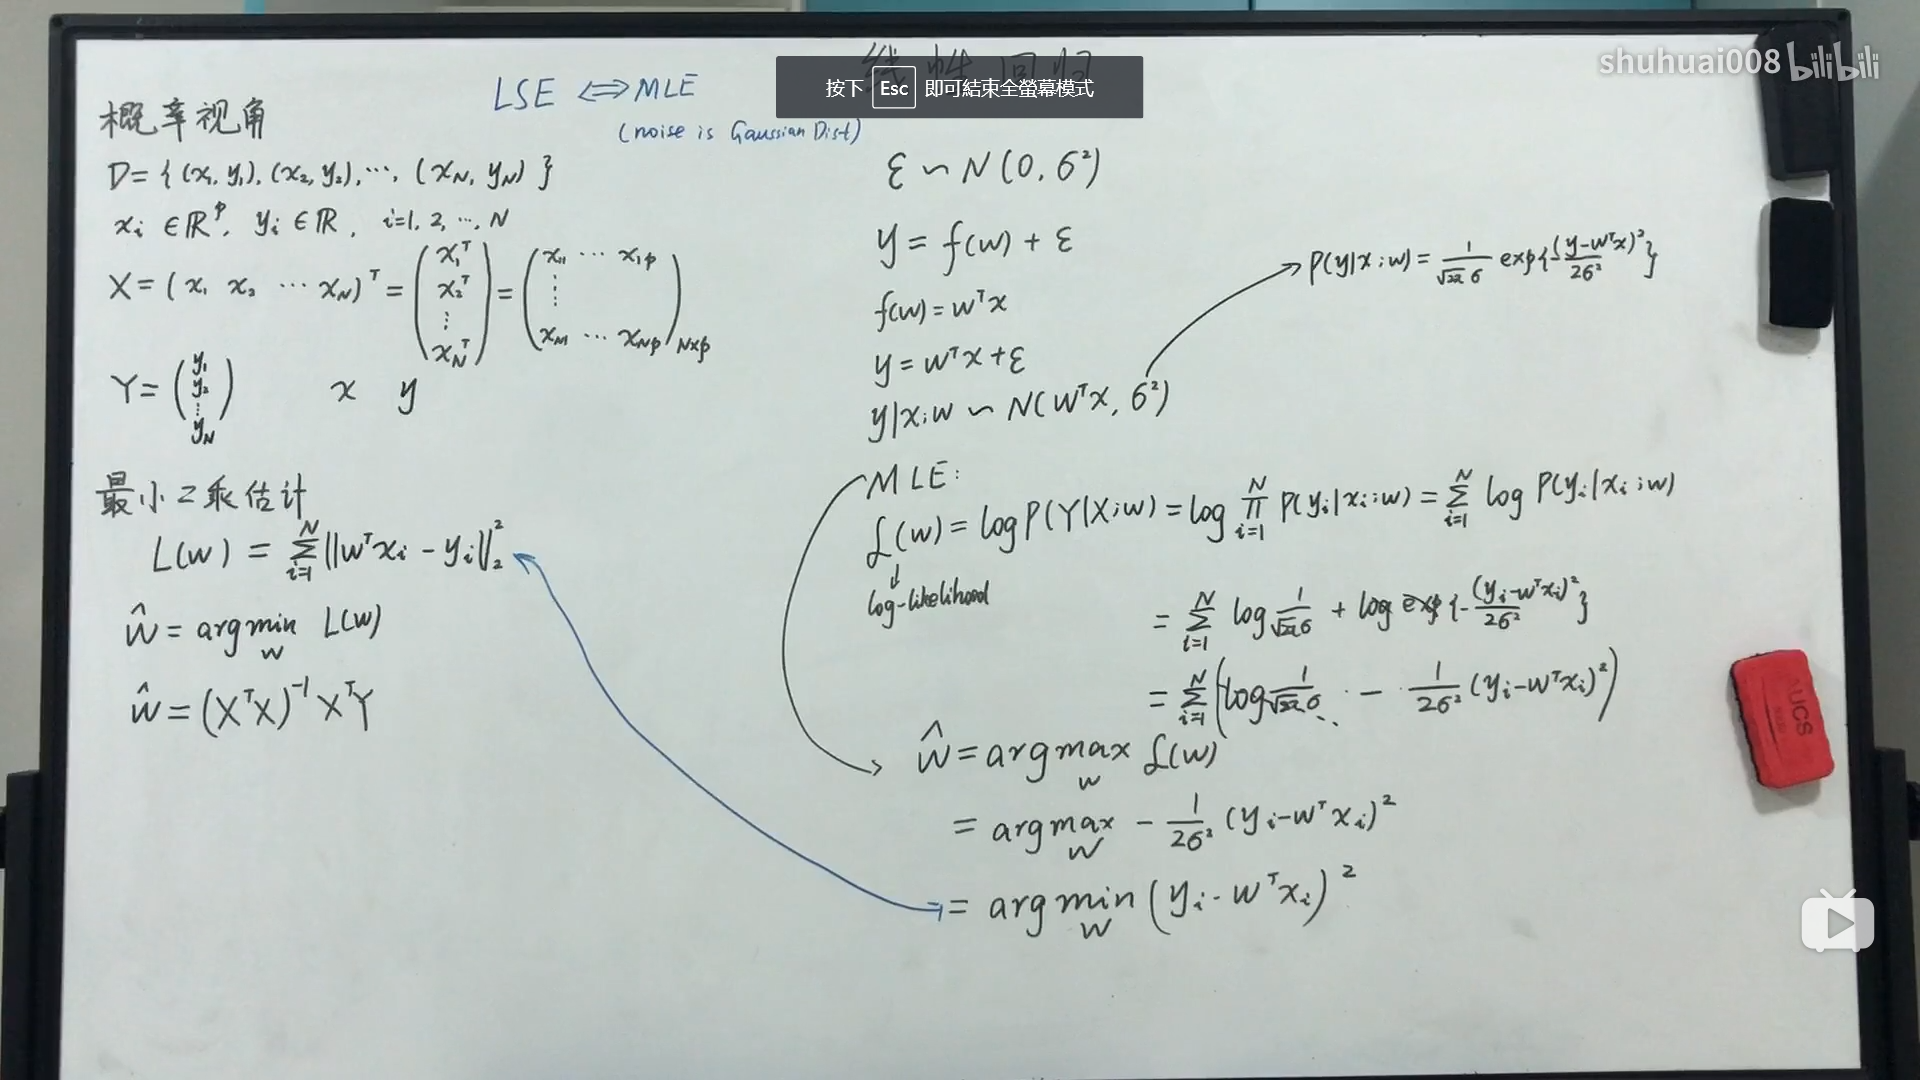 线性回归
按下 Esc 即可結束全螢幕模式
shuhuai008 bilibili
LSE ⟺ MLE
(noise is Gaussian Dist)
概率视角
D = {(x₁, y₁), (x₂, y₂), ⋯, (x_N, y_N)}
xᵢ ∈ ℝᵖ, yᵢ ∈ ℝ, i=1, 2, ⋯, N
X = (x₁ x₂ ⋯ x_N)ᵀ = (x₁ᵀ x₂ᵀ ⋮ x_Nᵀ) = (x₁₁ ⋯ x₁p ⋮ x_N1 ⋯ x_Np)_N×p
Y = (y₁ y₂ ⋮ y_N) x y
最小2乘估计
L(w) = Σ_{i=1}^{N} ||wᵀxᵢ - yᵢ||₂²
ŵ = argmin_w L(w)
ŵ = (XᵀX)⁻¹XᵀY
ε ∽ N(0, σ²)
y = f(w) + ε
f(w) = wᵀx
y = wᵀx + ε
y|x;w ∽ N(wᵀx, σ²)
P(y|x;w) = 1/(√2π σ) exp{-(y-wᵀx)²/2σ²}
MLE:
ℒ(w) = log P(Y|X;w) = log ∏_{i=1}^{N} P(yᵢ|xᵢ;w) = Σ_{i=1}^{N} log P(yᵢ|xᵢ;w)
log-likelihood
= Σ_{i=1}^{N} log 1/(√2π σ) + log exp{-(yᵢ-wᵀxᵢ)²/2σ²}
= Σ_{i=1}^{N} (log 1/(√2π σ) - 1/2σ² (yᵢ-wᵀxᵢ)²)
ŵ = argmax_w ℒ(w)
= argmax_w - 1/2σ² (yᵢ-wᵀxᵢ)²
= argmin_w (yᵢ - wᵀxᵢ)²
UCS